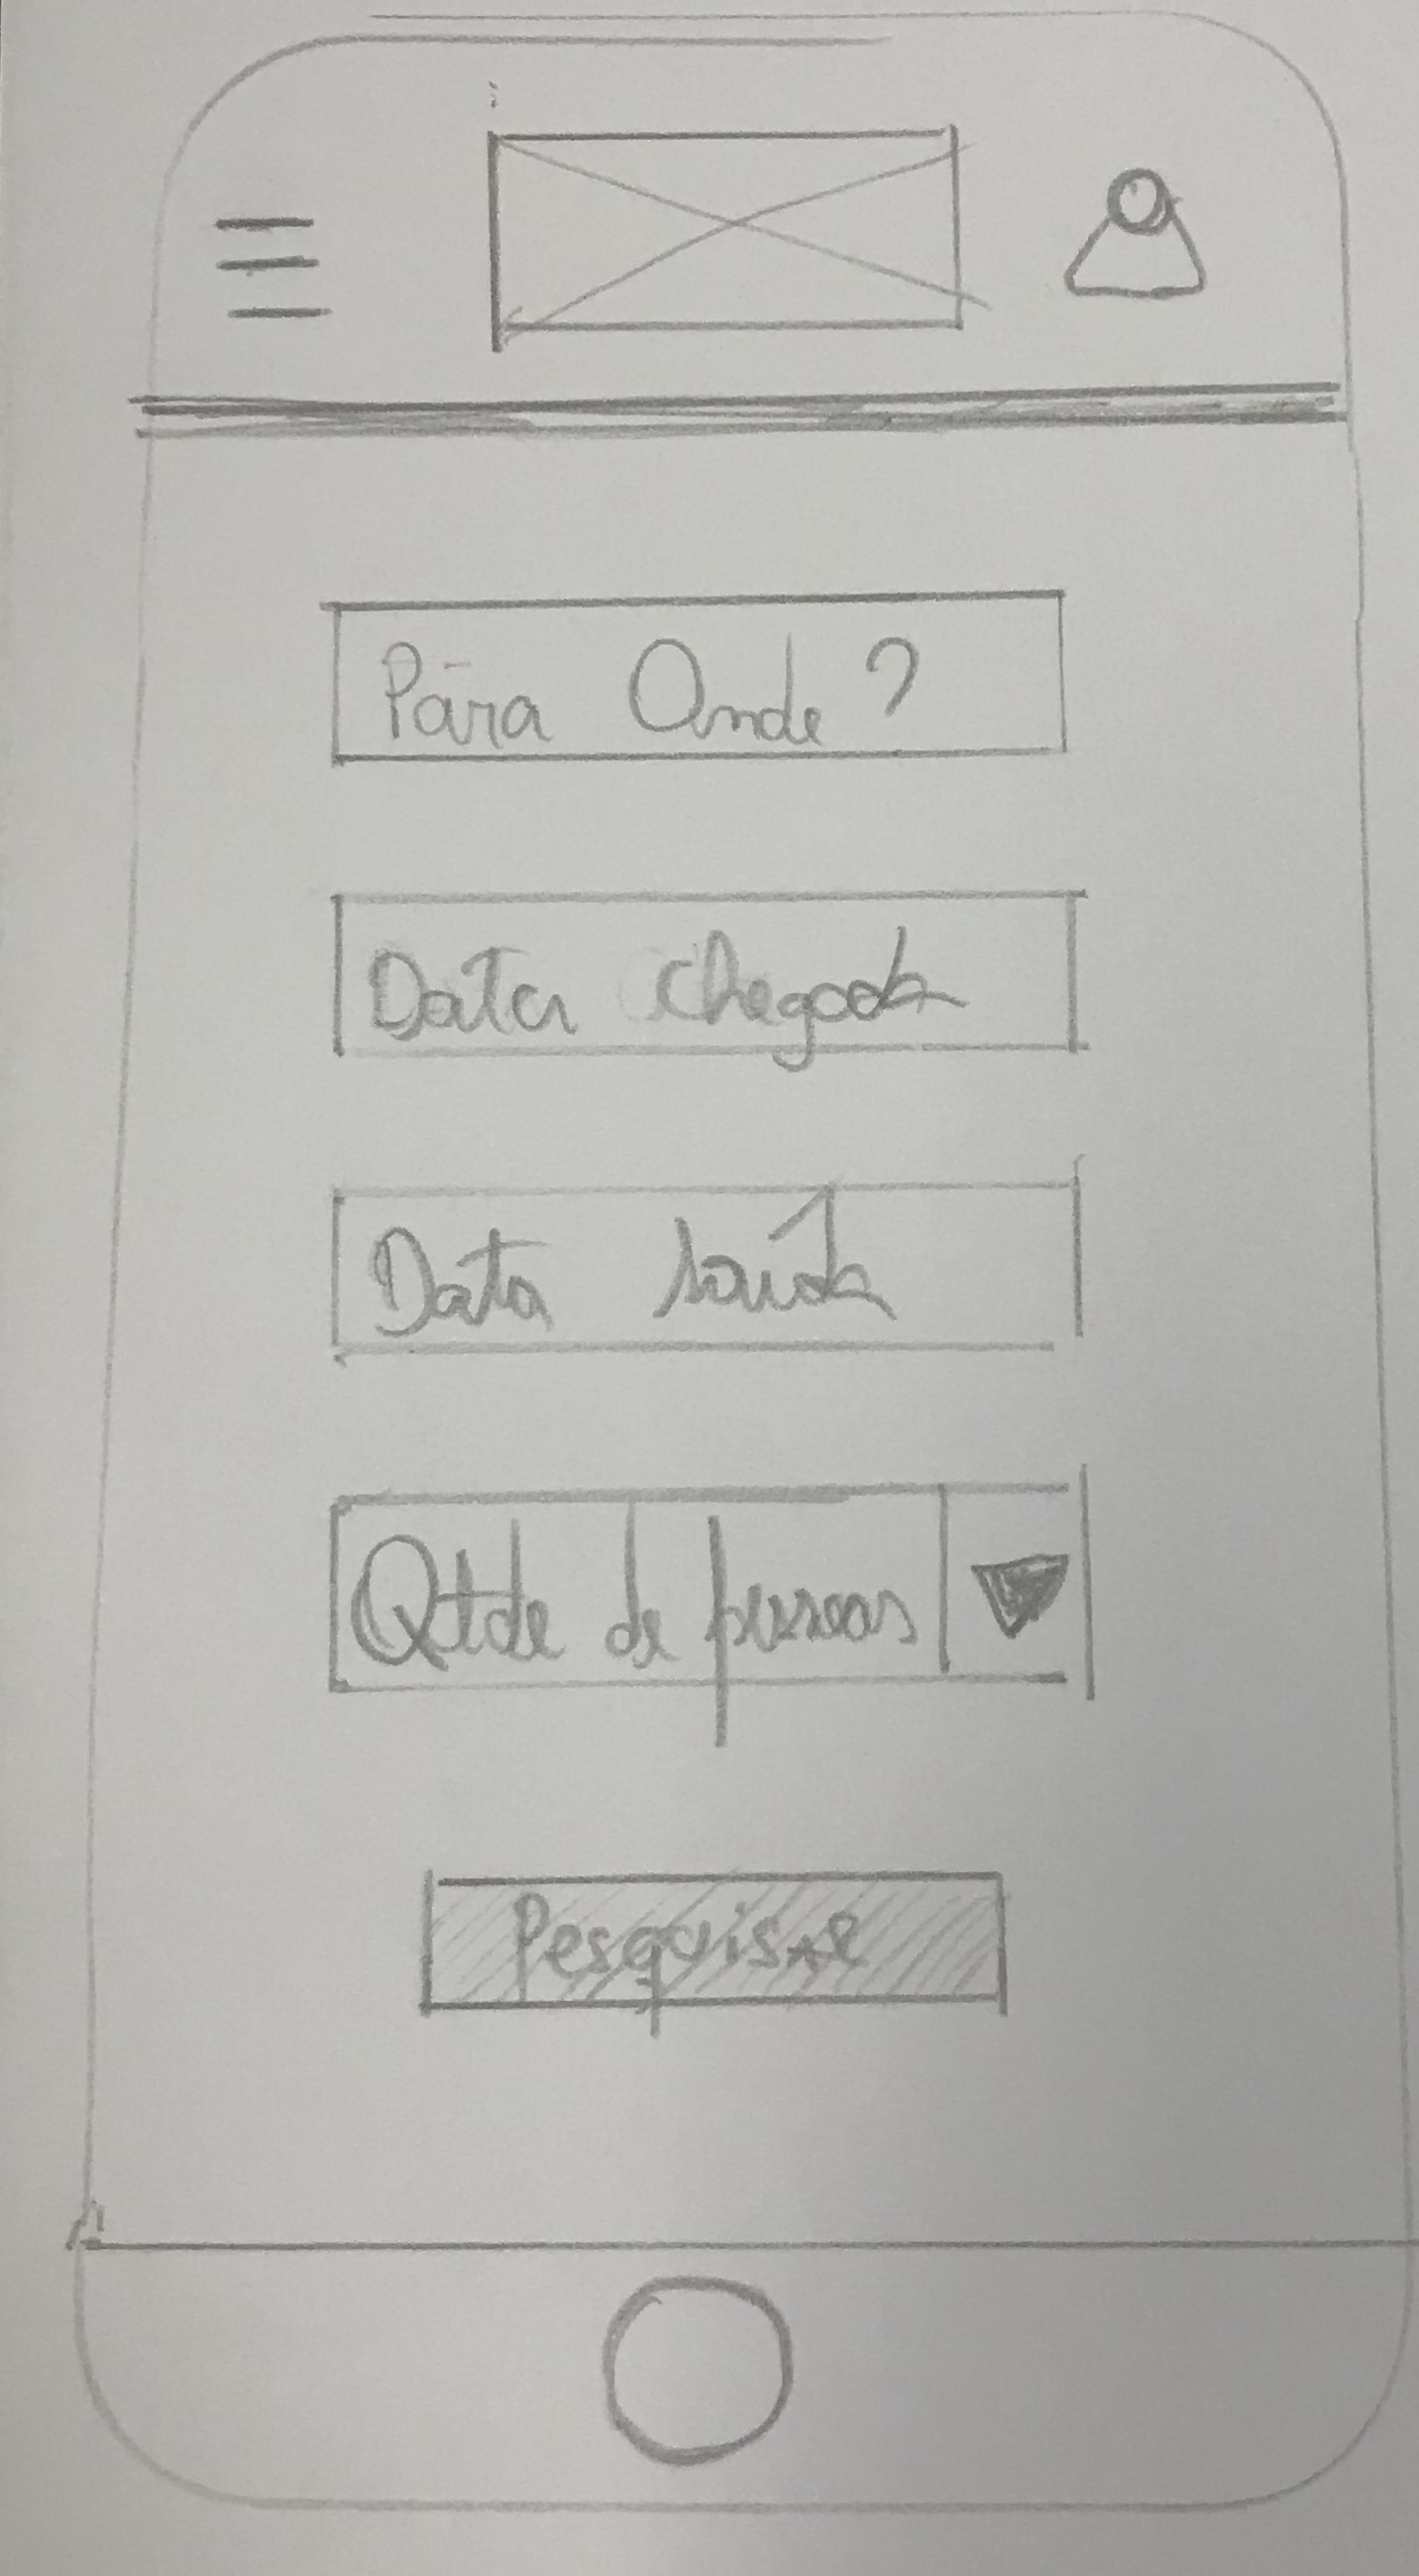 Para Onde?
Data chegada
Data saída
Qtde de pessoas
Pesquisar